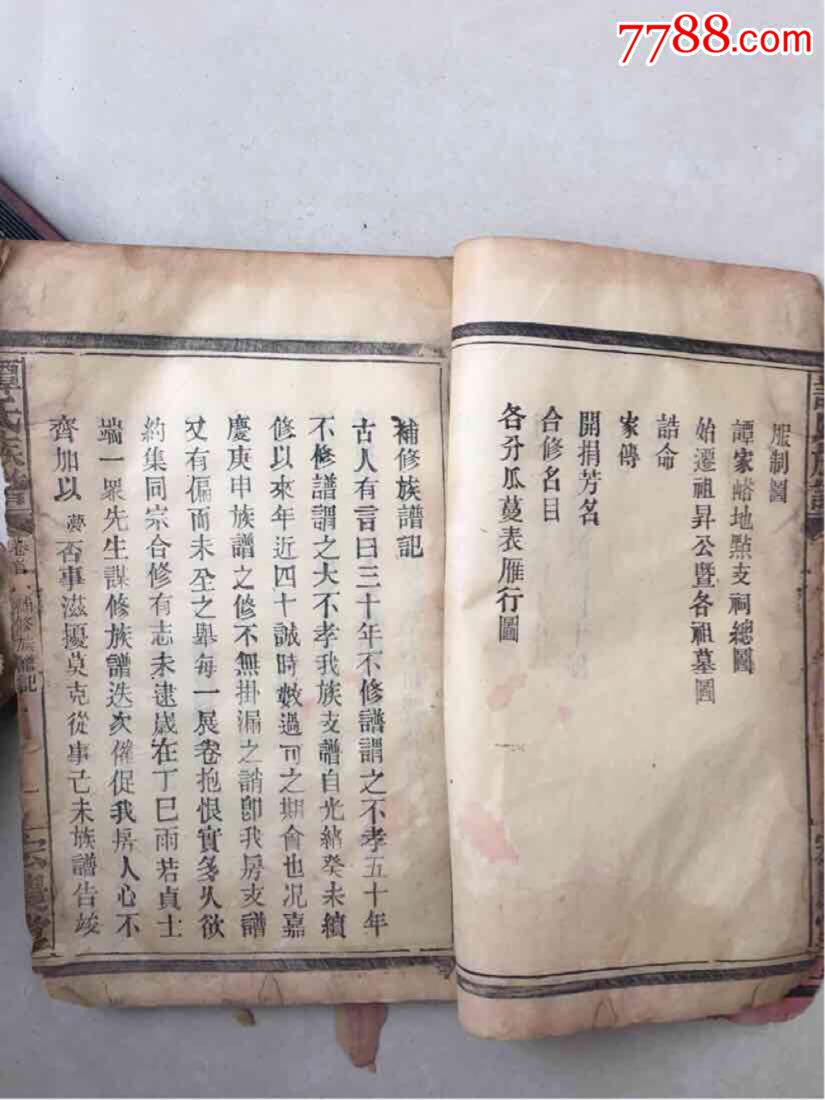 7788.com
服制圖
譚家嵱地點支祠總圖
始遷祖昇公暨各祖墓圖
誥命
家傳
開捐芳名
合修名目
各分瓜蔓表雁行圖
補修族譜記
古人有言曰三十年不修譜謂之不孝五十年
不修譜謂之大不孝我族支譜自光緒癸未續
修以來年近四十誠時數過可之期會也况嘉
慶庚申族譜之修不無掛漏之誚卽我房支譜
又有偏而未全之舉每一展卷抱恨實多久欲
約集同宗合修有志未逮歲在丁巳雨若貞士
端一眾先生謀修族譜迭次催促我房人心不
齊加以夢否事滋擾莫克從事己未族譜告竣
譚氏族譜
卷首
補修族譜記
一